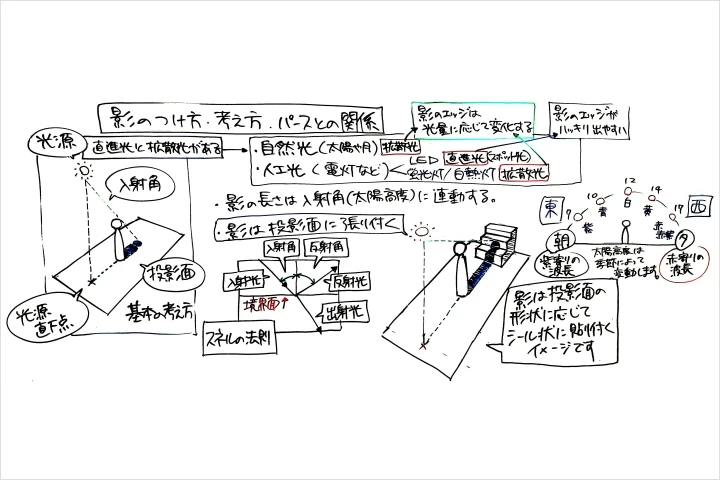 影のつけ方・考え方・パースとの関係
影のエッジは
光量に応じて変化する
影のエッジが
ハッキリ出やすい
光源
直進光と拡散光がある
・自然光(太陽や月) 拡散光
・人工光(電灯など)
LED 直進光(スポット光)
蛍光灯/白熱灯 拡散光
・影の長さは入射角(太陽高度)に連動する。
・影は投影面に張り付く
入射角
投影面
光源
直下点
基本の考え方
入射角
反射角
入射光
反射光
境界面
出射光
スネルの法則
影は投影面の
形状に応じて
シール状に貼り付く
イメージです
東
西
7
10
12
14
17
紫
青
白
黄
赤
朝
夕
紫寄りの
波長
太陽高度は
季節によって
変動します。
赤寄りの
波長